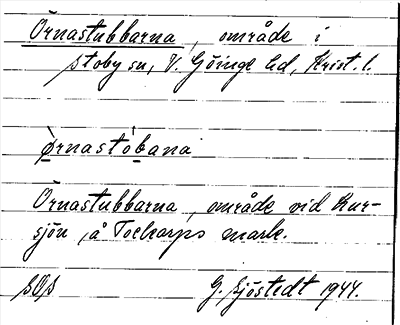 Örnastubbarna, område i
Stoby sn, V. Göinge hd, Krist. l.
ørnastòbana
Örnastubbarna, område vid Kur-
sjön, å Tockarps mark.
SOS G. Sjöstedt 1944.